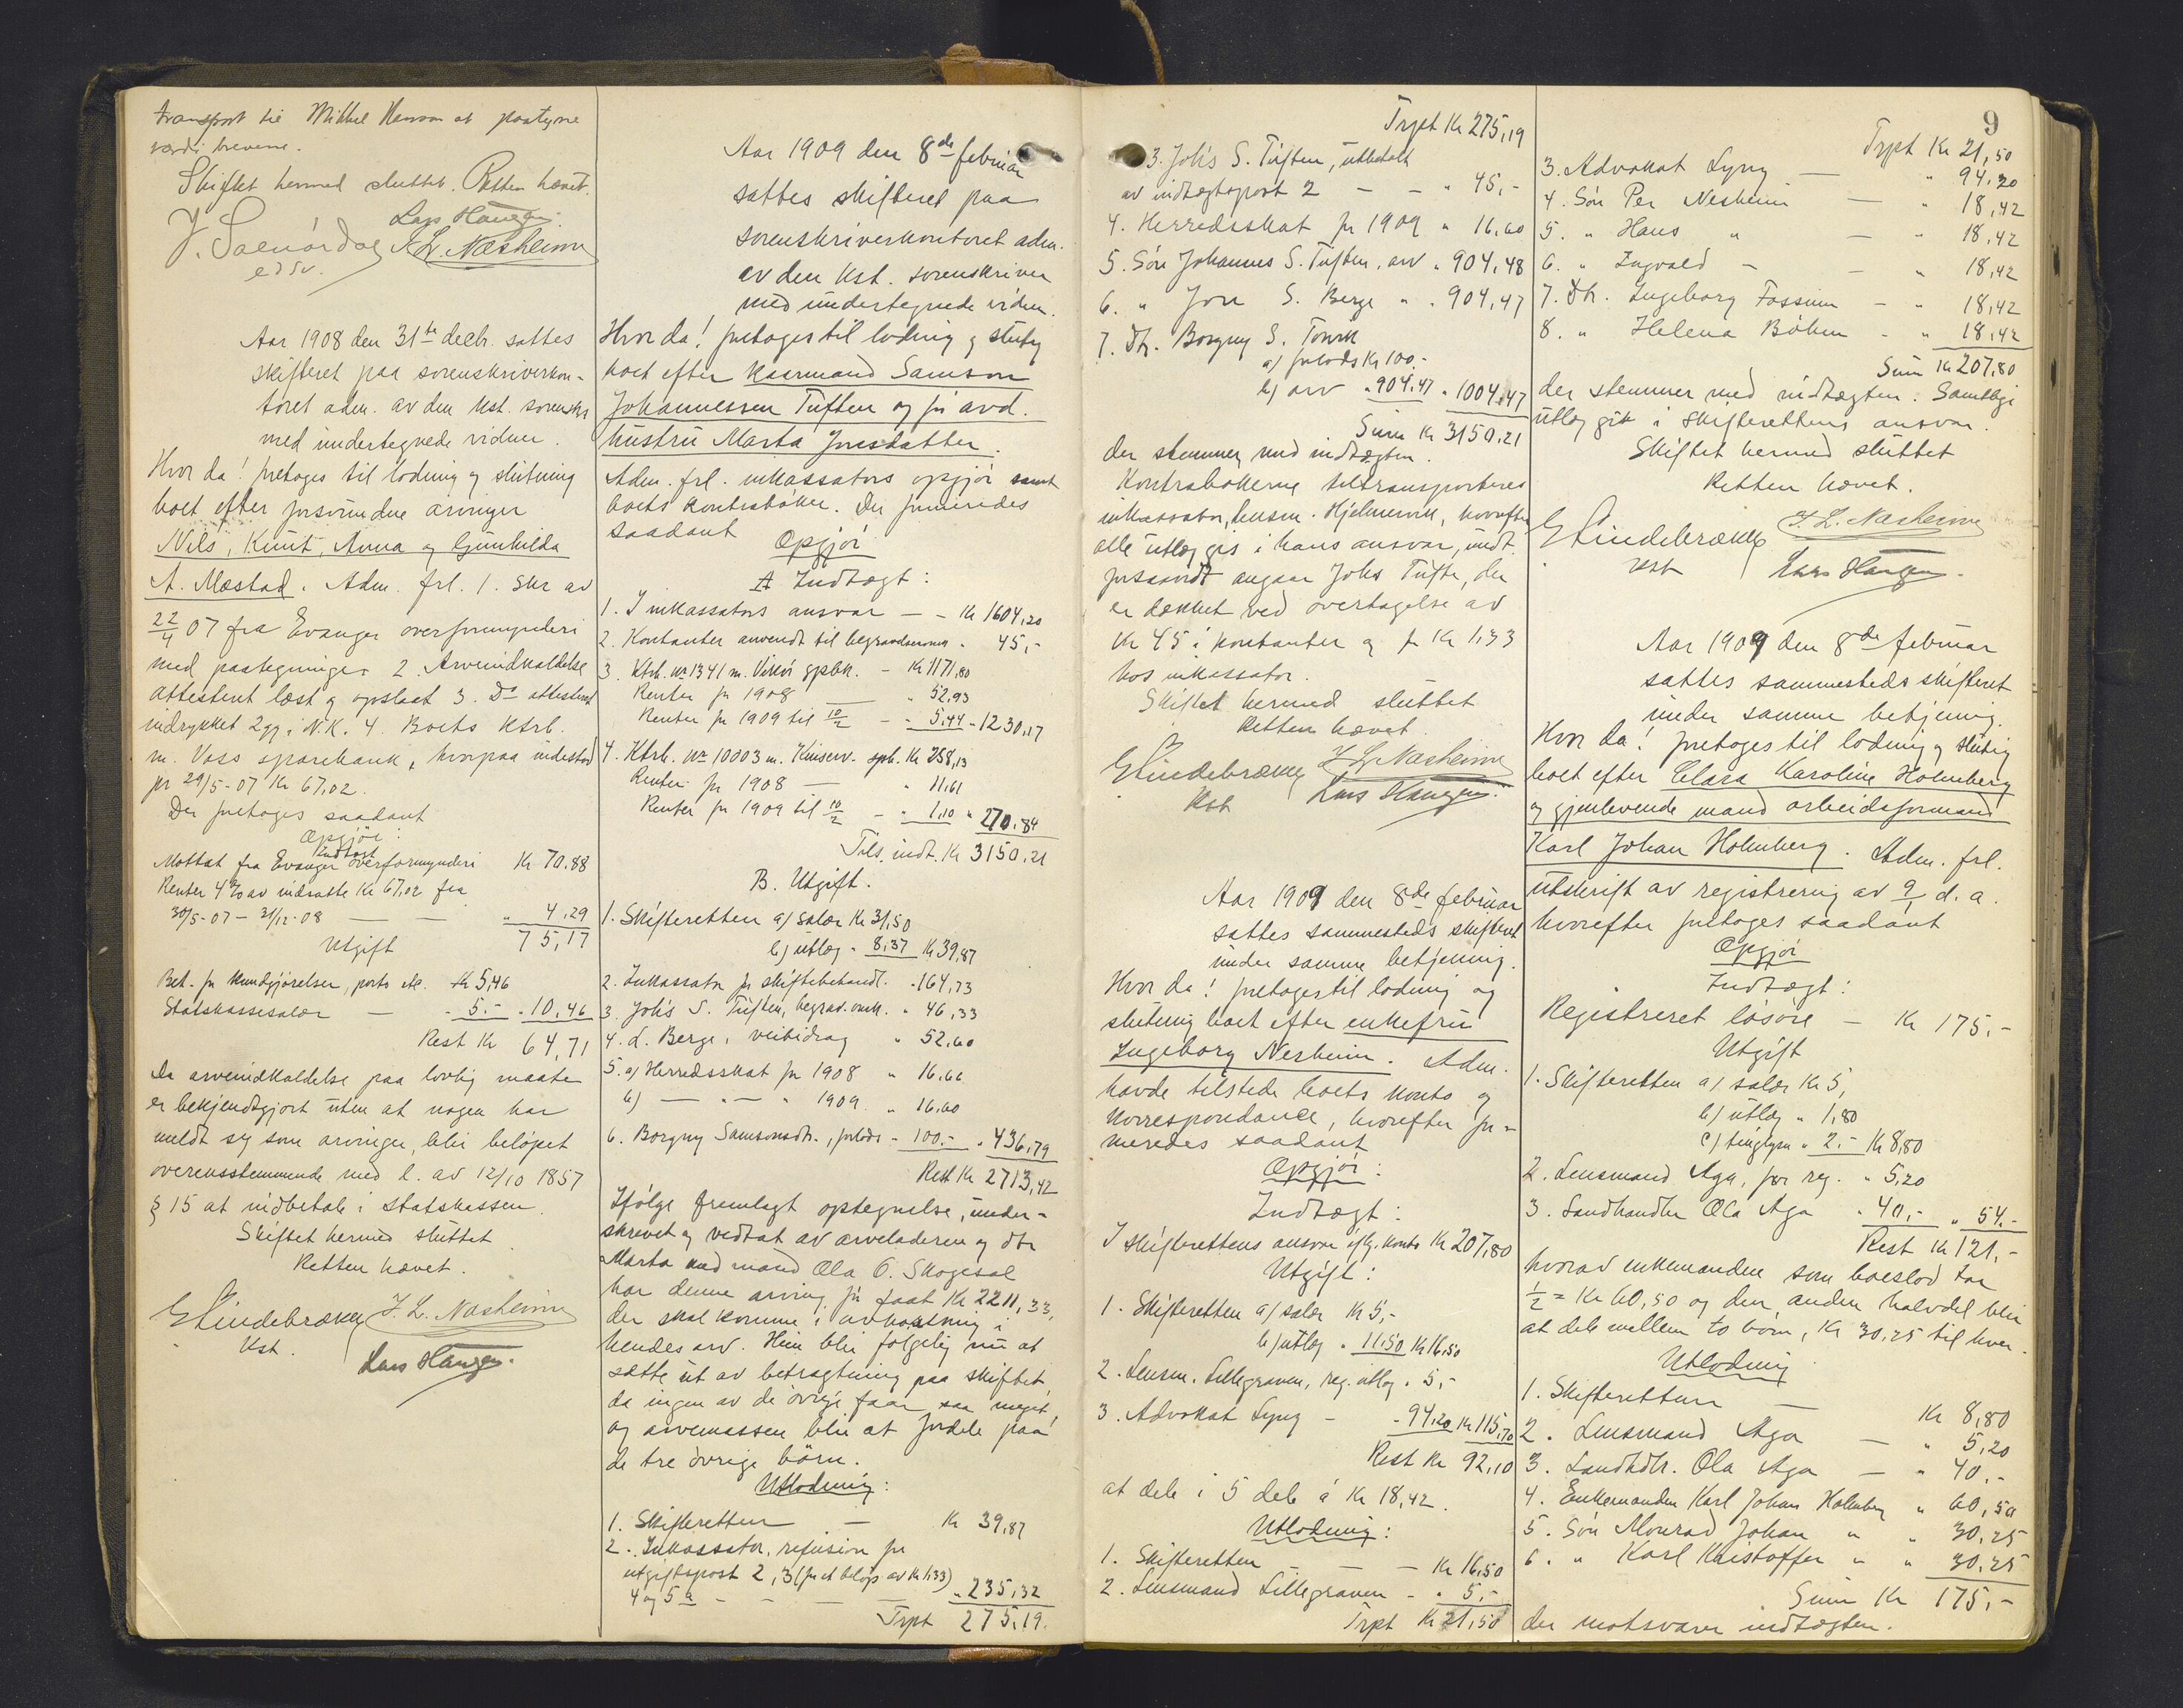 transport til Mikkel Hanson at paategne
værdi brevene.
Skiftet hermed sluttet. Retten hævet.
Lars Haugen.
J. Salvårdal J. L. Næsheim
edsv.
Aar 1908 den 31te decbr. sattes
skifteret paa sorenskriverkon-
toret adm. av den kst. sorenskr
med undertegnede vidner.
Hvor da! foretoges til lodning og slutning
boet efter forsvundne arvinger
Nils, Knut, Anna og Gunhilda
A. Mæstad. Adm. frl. 1. Skr av
22/4 07 fra Evanger overformynderi
med paategninger 2. Arveindkaldelse
attestert læst og opslaat 3. Do attestert
indrykket 2 gg i N.K. 4. Boets ktrb.
m. Voss sparebank, hvorpaa indestod
pr 29/5-07 Kr 67,02.
Der foretoges saadant
Opgjör:
Indtægt
Mottat fra Evanger overformynderi Kr 70.88
Renter 4% av indsatte Kr 67,02 fra
30/5-07 - 31/12-08 — — " 4,29
75,17
Utgift
Bet. for kundgjörelser, porto etc. Kr 5,46
Statskassesalær — " 5.- " 10,46
Rest Kr 64,71
Da arveindkaldelse paa lovlig maate
er bekjendtgjort uten at nogen har
meldt sig som arvinger, blir belöpet
overensstemmende med l. av 12/10 1857
§ 15 at indbetale i statskassen.
Skiftet hermed sluttet
Retten hævet.
E Lindebrække J. L. Næsheim
Kst.
Lars Haugen.
Aar 1909 den 8de februar
sattes skifteret paa
sorenskriverkontoret adm.
av den kst. sorenskriver
med undertegnede vidner.
Hvor da! foretoges til lodning og slutng
boet efter kaarmand Samson
Johannessen Tuften og för avd.
hustru Marta Jonsdatter.
Adm. frl. inkassators opgjör samt
boets kontraböker. Der formeredes
saadant
Opgjör
A Indtægt:
1. I inkassators ansvar — - Kr 1604,20
2. Kontanter anvendt til begravelsen " 45,-
3. Ktrb. No 1341 m. Vikör spbk. - Kr 1171,80
Renter for 1908 — " 52,93
Renter for 1909 til 10/2 - " 5,44 - 1230,17
4. Ktrb. No 10003 m. Kinserv. spb. Kr 258,13
Renter for 1908 — " 11,61
Renter for 1909 til 10/2 - " 1,10 " 270.84
Tils. indt. Kr 3150,21
B. Utgift.
1. Skifteretten a) salær Kr 31,50
b) utlæg " 8,37 Kr 39,87
2. Inkassator for skiftebehandl. " 164,73
3. Johs S. Tuften, begrav. omk. " 46,33
4. L. Berge, veibidrag " 52,60
5. a) Herredsskat for 1908 " 16,66
b) — " — " 1909 " 16,60
6. Borgny Samsonsdtr., forlods - 100.- " 436,79
Rest Kr 2713,42
Ifölge fremlagt optegnelse, under-
skrevet og vedtat av arveladeren og dtr
Marta med mand Ola O. Skogesal
har denne arving fn faat Kr 2211,33,
der skal komme i avkortning i
hendes arv. Hun blir fölgelig nu at
sætte ut av betragtning paa skiftet,
da ingen av de övrige faar saa meget,
og arvemassen blir at fordele paa
de tre övrige börn.
Utlodning:
1. Skifteretten — Kr 39,87
2. Inkassator, refusion for
utgiftspost 2, 3 (for et belöp av Kr 1,33)
4 og 5 a - - — — " 235,32
Trpt 275,19.
Trpt Kr 275,19
3. Johs S. Tuften, utbetalt
av indtægtspost 2 — - " 45,-
4. Herredsskat for 1909 " 16,60
5. Sön Johannes S. Tuften, arv " 904,48
6. " Jon S. Berge " " 904,47
7. Dtr. Borgny S. Towik
a) forlods Kr 100.-
b) arv " 904,47 " 1004,47
Sum Kr 3150,21
der stemmer med indtægten.
Kontrabökerne tiltransporteres
inkassator, lensm. Hjelmervik, hvorefter
alle utlæg gis i hans ansvar, undt.
forsaavidt angaar Johs Tufte, der
er dækket ved overtagelse av
Kr 45 i kontanter og fr Kr 1,33
hos inkassator.
Skiftet hermed sluttet
Retten hævet
E Lindebrække J. L. Næsheim
Kst Lars Haugen.
Aar 1909 den 8de februar
sattes sammesteds skifteret
under samme betjening.
Hvor da! foretoges til lodning og
slutning boet efter enkefru
Ingeborg Nesheim. Adm.
havde tilstede boets konto og
korrespondance, hvorefter for-
meredes saadant
Opgjör:
Indtægt:
I skifterettens ansvar iflg. konto Kr 207,80
Utgift:
1. Skifteretten a) salær Kr 5,-
b) utlæg " 11.50 Kr 16,50
2. Lensm. Lillegraven, reg. utlæg " 5,-
3. Advokat Lyng - - 94,20 Kr 115,70
Rest Kr 92,10
at dele i 5 dele á Kr 18,42.
Utlodning:
1. Skifteretten - — - Kr 16,50
2. Lensmand Lillegraven - " 5,-
Trpt Kr 21,50
9
Trpt Kr 21,50
3. Advokat Lyng — " 94,20
4. Sön Per Nesheim — " 18,42
5. " Hans " — " 18,42
6. " Ingvald - - " 18,42
7. Dtr. Ingeborg Fossum - " 18,42
8. " Helena Böhm - " 18,42
Sum Kr 207,80
der stemmer med indtægten. Samtlige
utlæg gis i skifterettens ansvar.
Skiftet hermed sluttet
Retten hævet.
E Lindebrække J. L. Næsheim
Kst Lars Haugen.
Aar 1909 den 8de februar
sattes sammesteds skifteret
under samme betjening.
Hvor da! foretoges til lodning og slutng
boet efter Clara Karoline Holmberg
og gjenlevende mand arbeidsformand
Karl Johan Holmberg. Adm. frl.
utskrift av registrering av 9/1 d. a.
hvorefter foretoges saadant
Opgjör
Indtægt:
Registreret lösöre — Kr 175.-
Utgift
1. Skifteretten a) salær Kr 5,
b) utlæg " 1,80
c) tinglysn " 2.- Kr 8,80
2. Lensmand Aga, for reg. " 5,20
3. Landhandler Ola Aga " 40,- " 54.-
Rest Kr 121,-
hvorav enkemanden som boeslod tar
1/2 = Kr 60,50 og den anden halvdel blir
at dele mellem to börn, Kr 30,25 til hver.
Utlodning
1. Skifteretten — Kr 8,80
2. Lensmand Aga — " 5,20
3. Landhdlr. Ola Aga — " 40.-
4. Enkemanden Karl Johan Holmberg " 60,50
5. Sön Monrad Johan " " 30,25
6. " Karl Kristoffer " " 30,25
Sum Kr 175,-
der motsvarer indtægten.